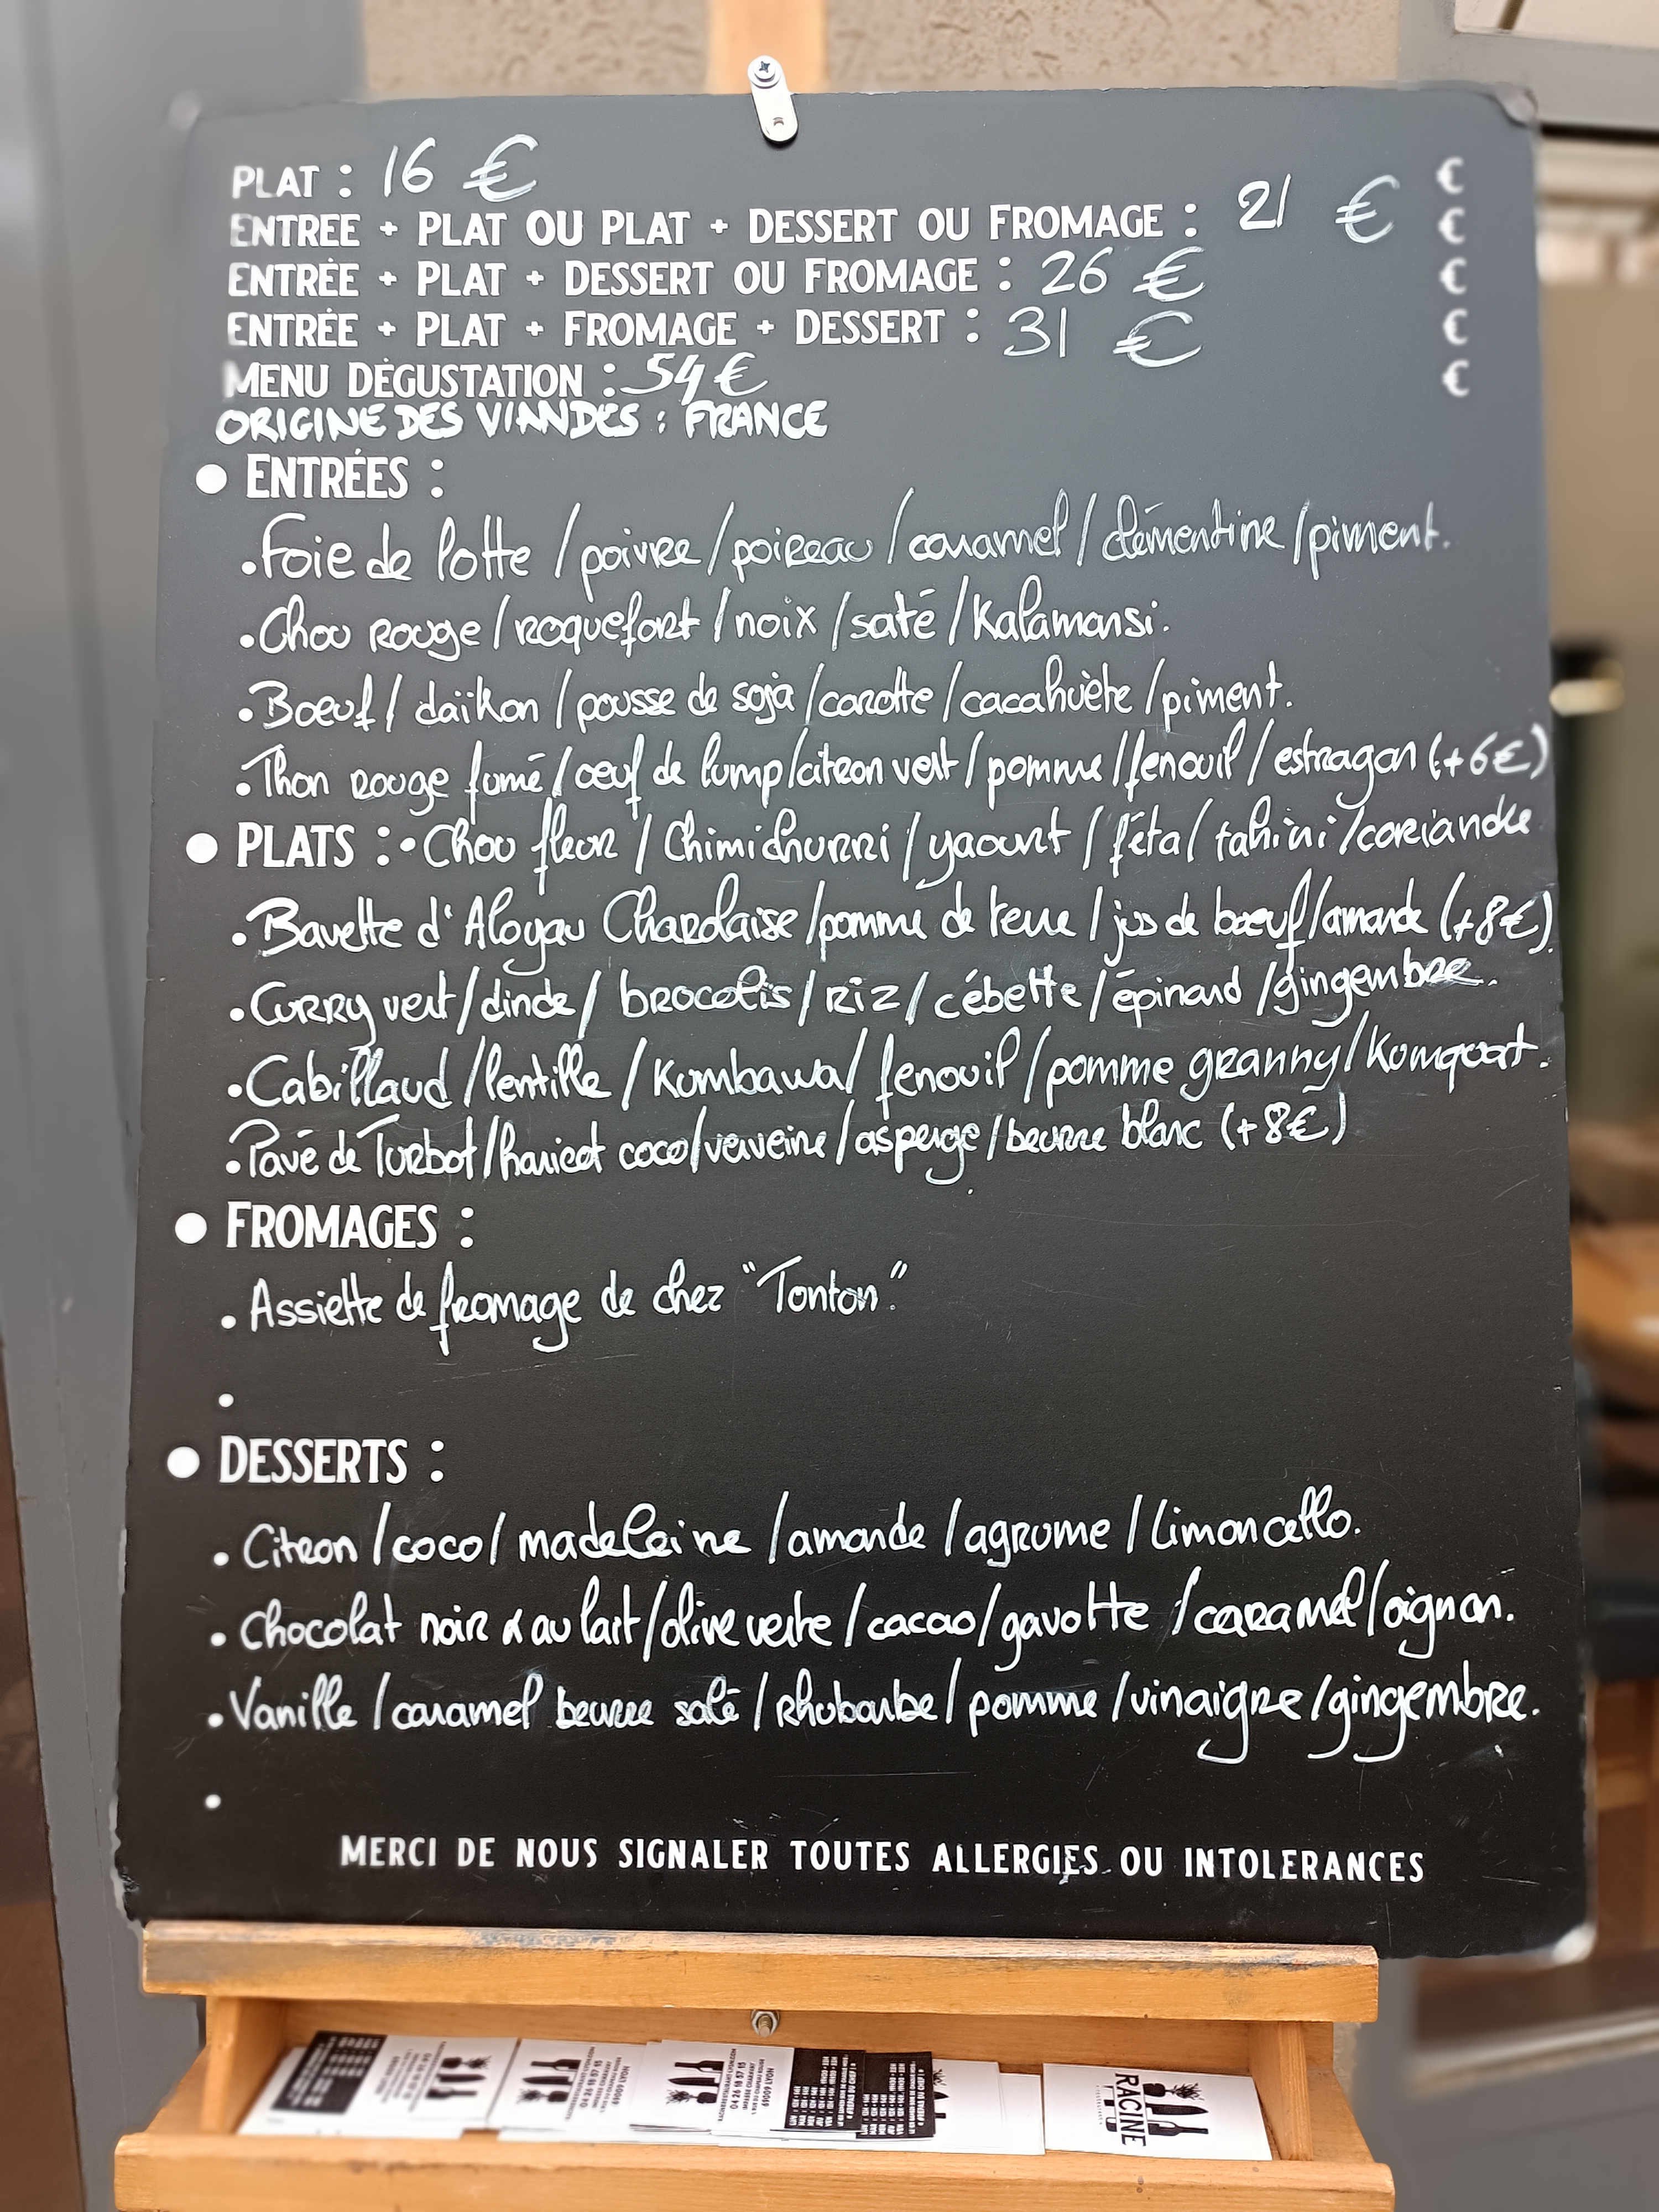 PLAT : 16 € €
ENTREE + PLAT OU PLAT + DESSERT OU FROMAGE : 21 € €
ENTRÉE + PLAT + DESSERT OU FROMAGE : 26 € €
ENTRÉE + PLAT + FROMAGE + DESSERT : 31 € €
MENU DÉGUSTATION : 54 € €
ORIGINE DES VIANDES : FRANCE
● ENTRÉES :
. Foie de lotte / poivre / poireau / caramel / clémentine / piment.
. Chou rouge / roquefort / noix / saté / Kalamansi.
. Boeuf / daïkon / pousse de soja / carotte / cacahuète / piment.
. Thon rouge fumé / oeuf de lump / citron vert / pomme / fenouil / estragon (+6€)
● PLATS : . Chou fleur / Chimichurri / yaourt / féta / tahini / coriandre
. Bavette d'Aloyau Charolaise / pomme de terre / jus de boeuf / amande (+8€).
. Curry vert / dinde / brocolis / riz / cébette / épinard / gingembre.
. Cabillaud / lentille / Kumbawa / fenouil / pomme granny / Kumquat.
. Pavé de Turbot / haricot coco / verveine / asperge / beurre blanc (+8€)
● FROMAGES :
. Assiette de fromage de chez "Tonton."
.
● DESSERTS :
. Citron / coco / madeleine / amande / agrume / Limoncello.
. Chocolat noir & au lait / olive verte / cacao / gavotte / caramel / oignon.
. Vanille / caramel beurre salé / rhubarbe / pomme / vinaigre / gingembre.
.
MERCI DE NOUS SIGNALER TOUTES ALLERGIES OU INTOLERANCES
04 26 18 57 15
69009 LYON
04 26 18 57 15
69009 LYON
RACINE